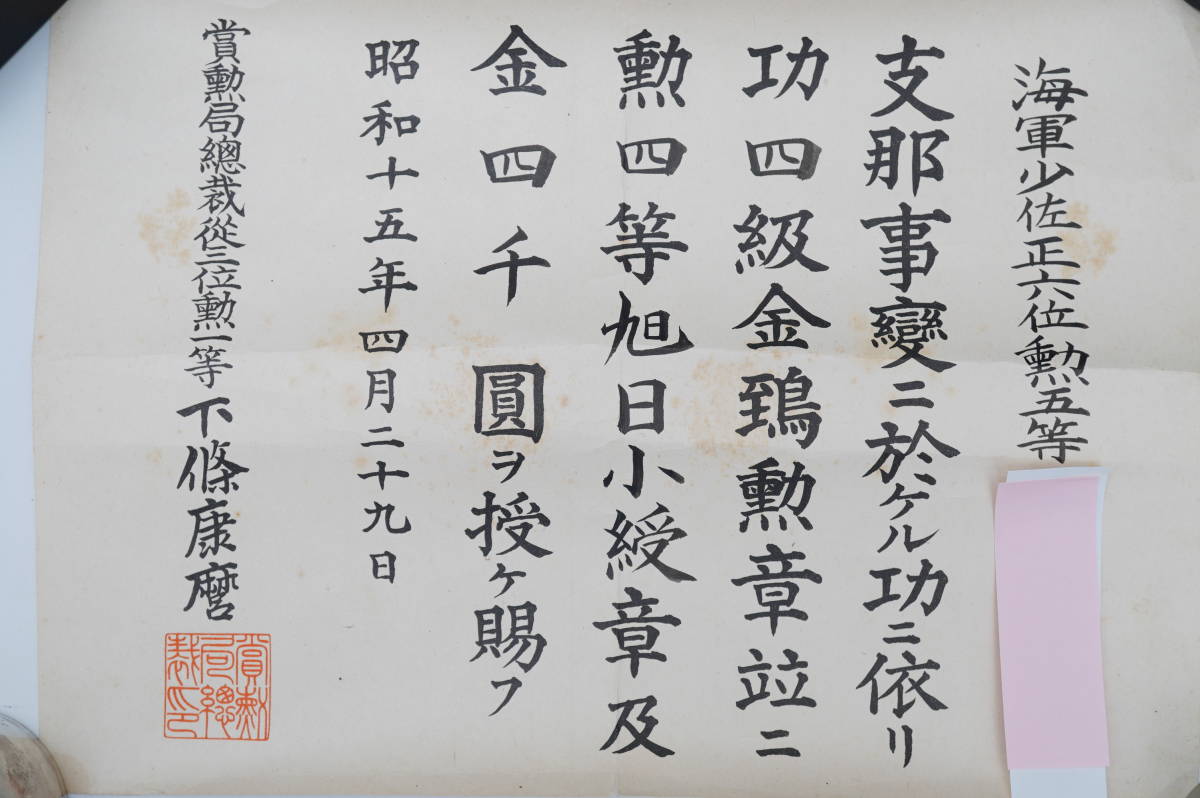 海軍少佐正六位勲五等
支那事變ニ於ケル功ニ依リ
功四級金鵄勲章竝ニ
勲四等旭日小綬章及
金四千圓ヲ授ケ賜フ
昭和十五年四月二十九日
賞勲局總裁從三位勲一等下條康麿
賞勲局總裁印